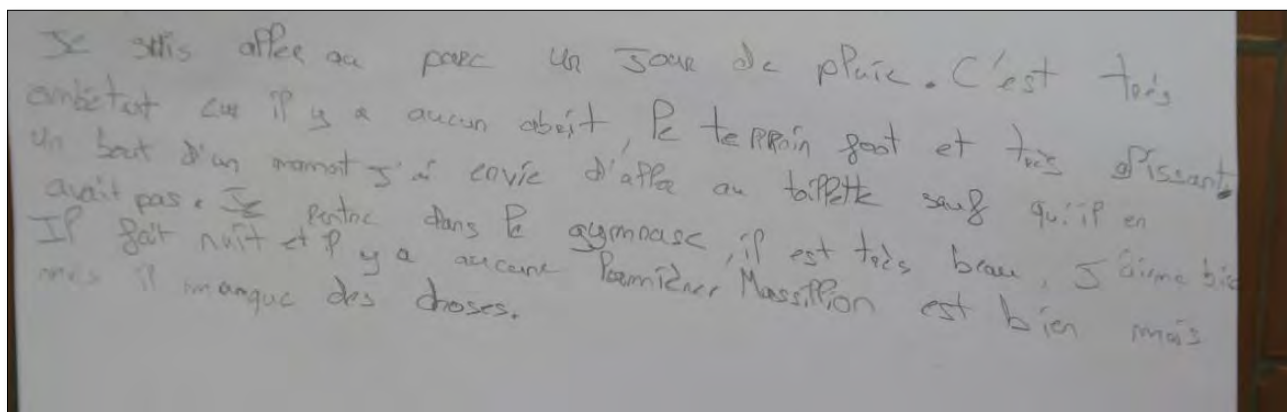 Je suis aller au parc un jour de pluie. C'est très
embêtant car il y a aucun abrit, le terrain foot et très glissant.
Un bout d'un moment j'ai envie d'aller au toillette sauf qu'il en
avait pas. Je rentre dans le gymnase, il est très beau, j'aime bien
Il fait nuit et il y a aucune lumière. Massillion est bien mais
mais il manque des choses.